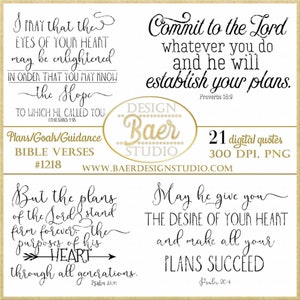 I pray that the
EYES OF YOUR HEART
may be enlightened
IN ORDER THAT YOU MAY KNOW
the Hope
TO WHICH HE CALLED YOU
Commit to the Lord
whatever you do
and he will
establish your plans.
Proverbs 16:3
Plans/Goals/Guidance
BIBLE VERSES
#1218
DESIGN
Baer
STUDIO
21 digital quotes
300 DPI, PNG
WWW.BAERDESIGNSTUDIO.COM
But the plans
of the Lord stand
firm forever, the
purposes of his
HEART
through all generations.
Psalm 33:11
May he give you
THE DESIRE OF YOUR HEART
and make all your
PLANS SUCCEED
Psalm 20:4